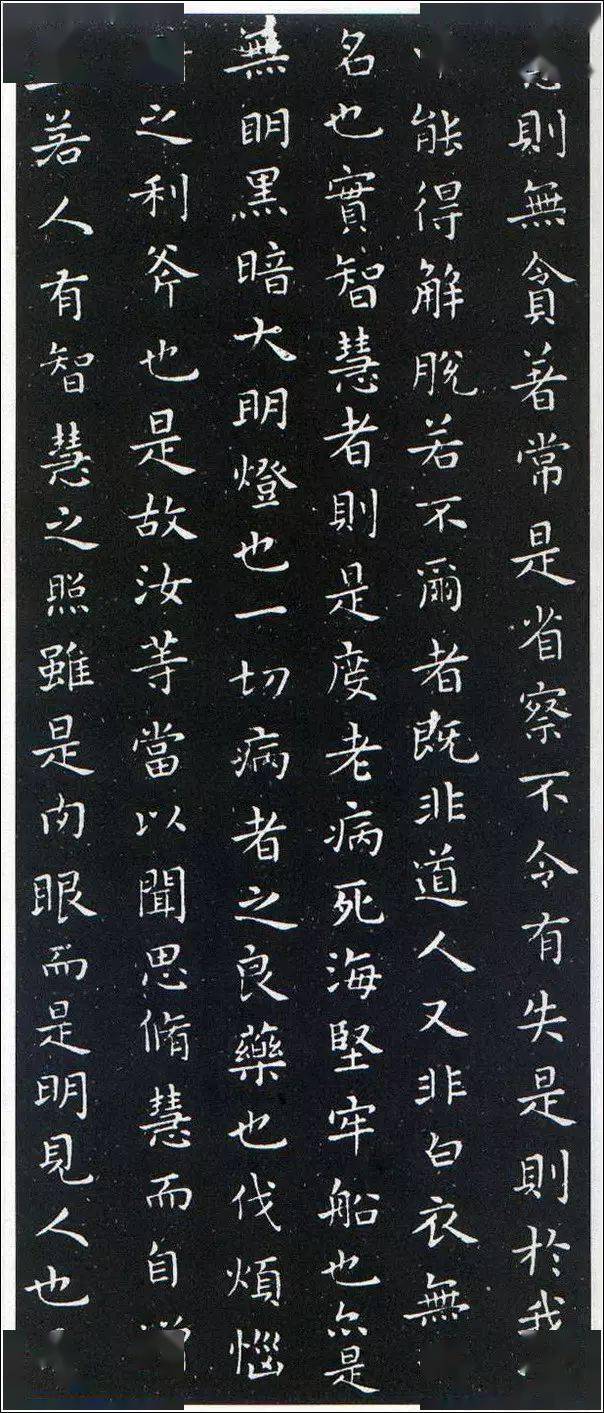 則無貪著常是省察不令有失是則於我
能得解脫若不爾者既非道人又非白衣無
名也實智慧者則是度老病死海堅牢船也亦是
無明黑暗大明燈也一切病者之良藥也伐煩惱
之利斧也是故汝等當以聞思脩慧而自
若人有智慧之照雖是肉眼而是明見人也